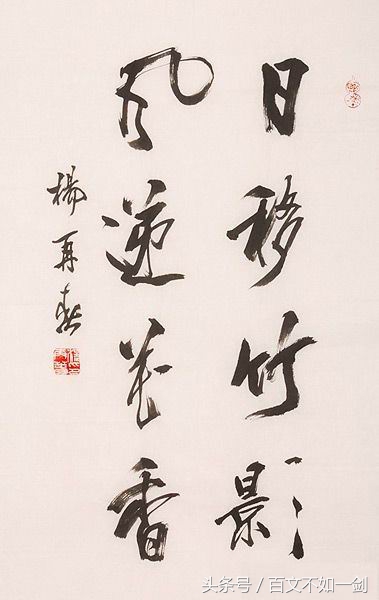 日移竹影
风递花香
楊再春
头条号 / 百文不如一剑